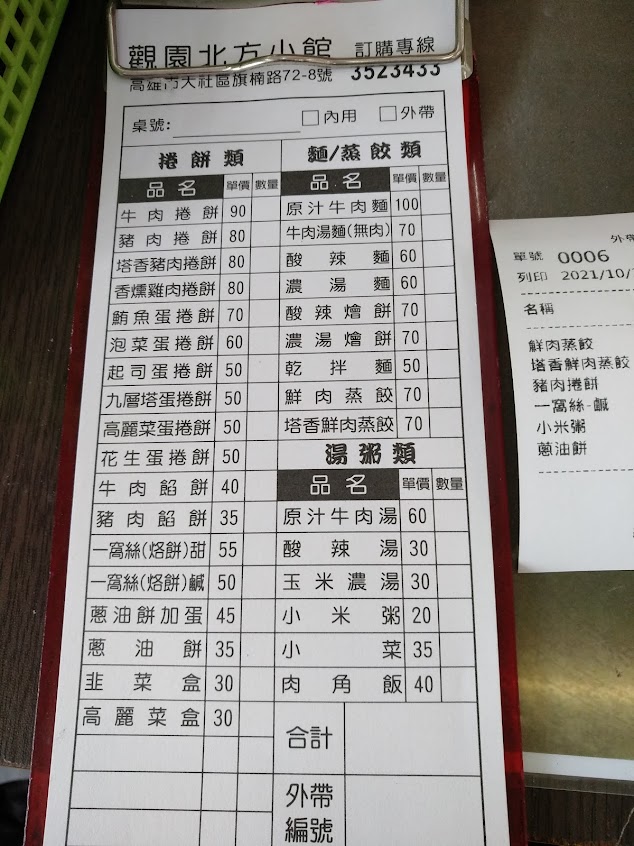 觀園北方小館 訂購專線
高雄市大社區旗楠路72-8號 3523433
桌號: □內用 □外帶
捲餅類
品名 單價 數量
牛肉捲餅 90
豬肉捲餅 80
塔香豬肉捲餅 80
香燻雞肉捲餅 80
鮪魚蛋捲餅 70
泡菜蛋捲餅 60
起司蛋捲餅 50
九層塔蛋捲餅 50
高麗菜蛋捲餅 50
花生蛋捲餅 50
牛肉餡餅 40
豬肉餡餅 35
一窩絲(烙餅)甜 55
一窩絲(烙餅)鹹 50
蔥油餅加蛋 45
蔥油餅 35
韭菜盒 30
高麗菜盒 30
麵/蒸餃類
品名 單價 數量
原汁牛肉麵 100
牛肉湯麵(無肉) 70
酸辣麵 60
濃湯麵 60
酸辣燴餅 70
濃湯燴餅 70
乾拌麵 50
鮮肉蒸餃 70
塔香鮮肉蒸餃 70
湯粥類
品名 單價 數量
原汁牛肉湯 60
酸辣湯 30
玉米濃湯 30
小米粥 20
小菜 35
肉角飯 40
合計
外帶
編號
外帶
單號 0006
列印 2021/10/
名稱
鮮肉蒸餃
塔香鮮肉蒸餃
豬肉捲餅
一窩絲-鹹
小米粥
蔥油餅